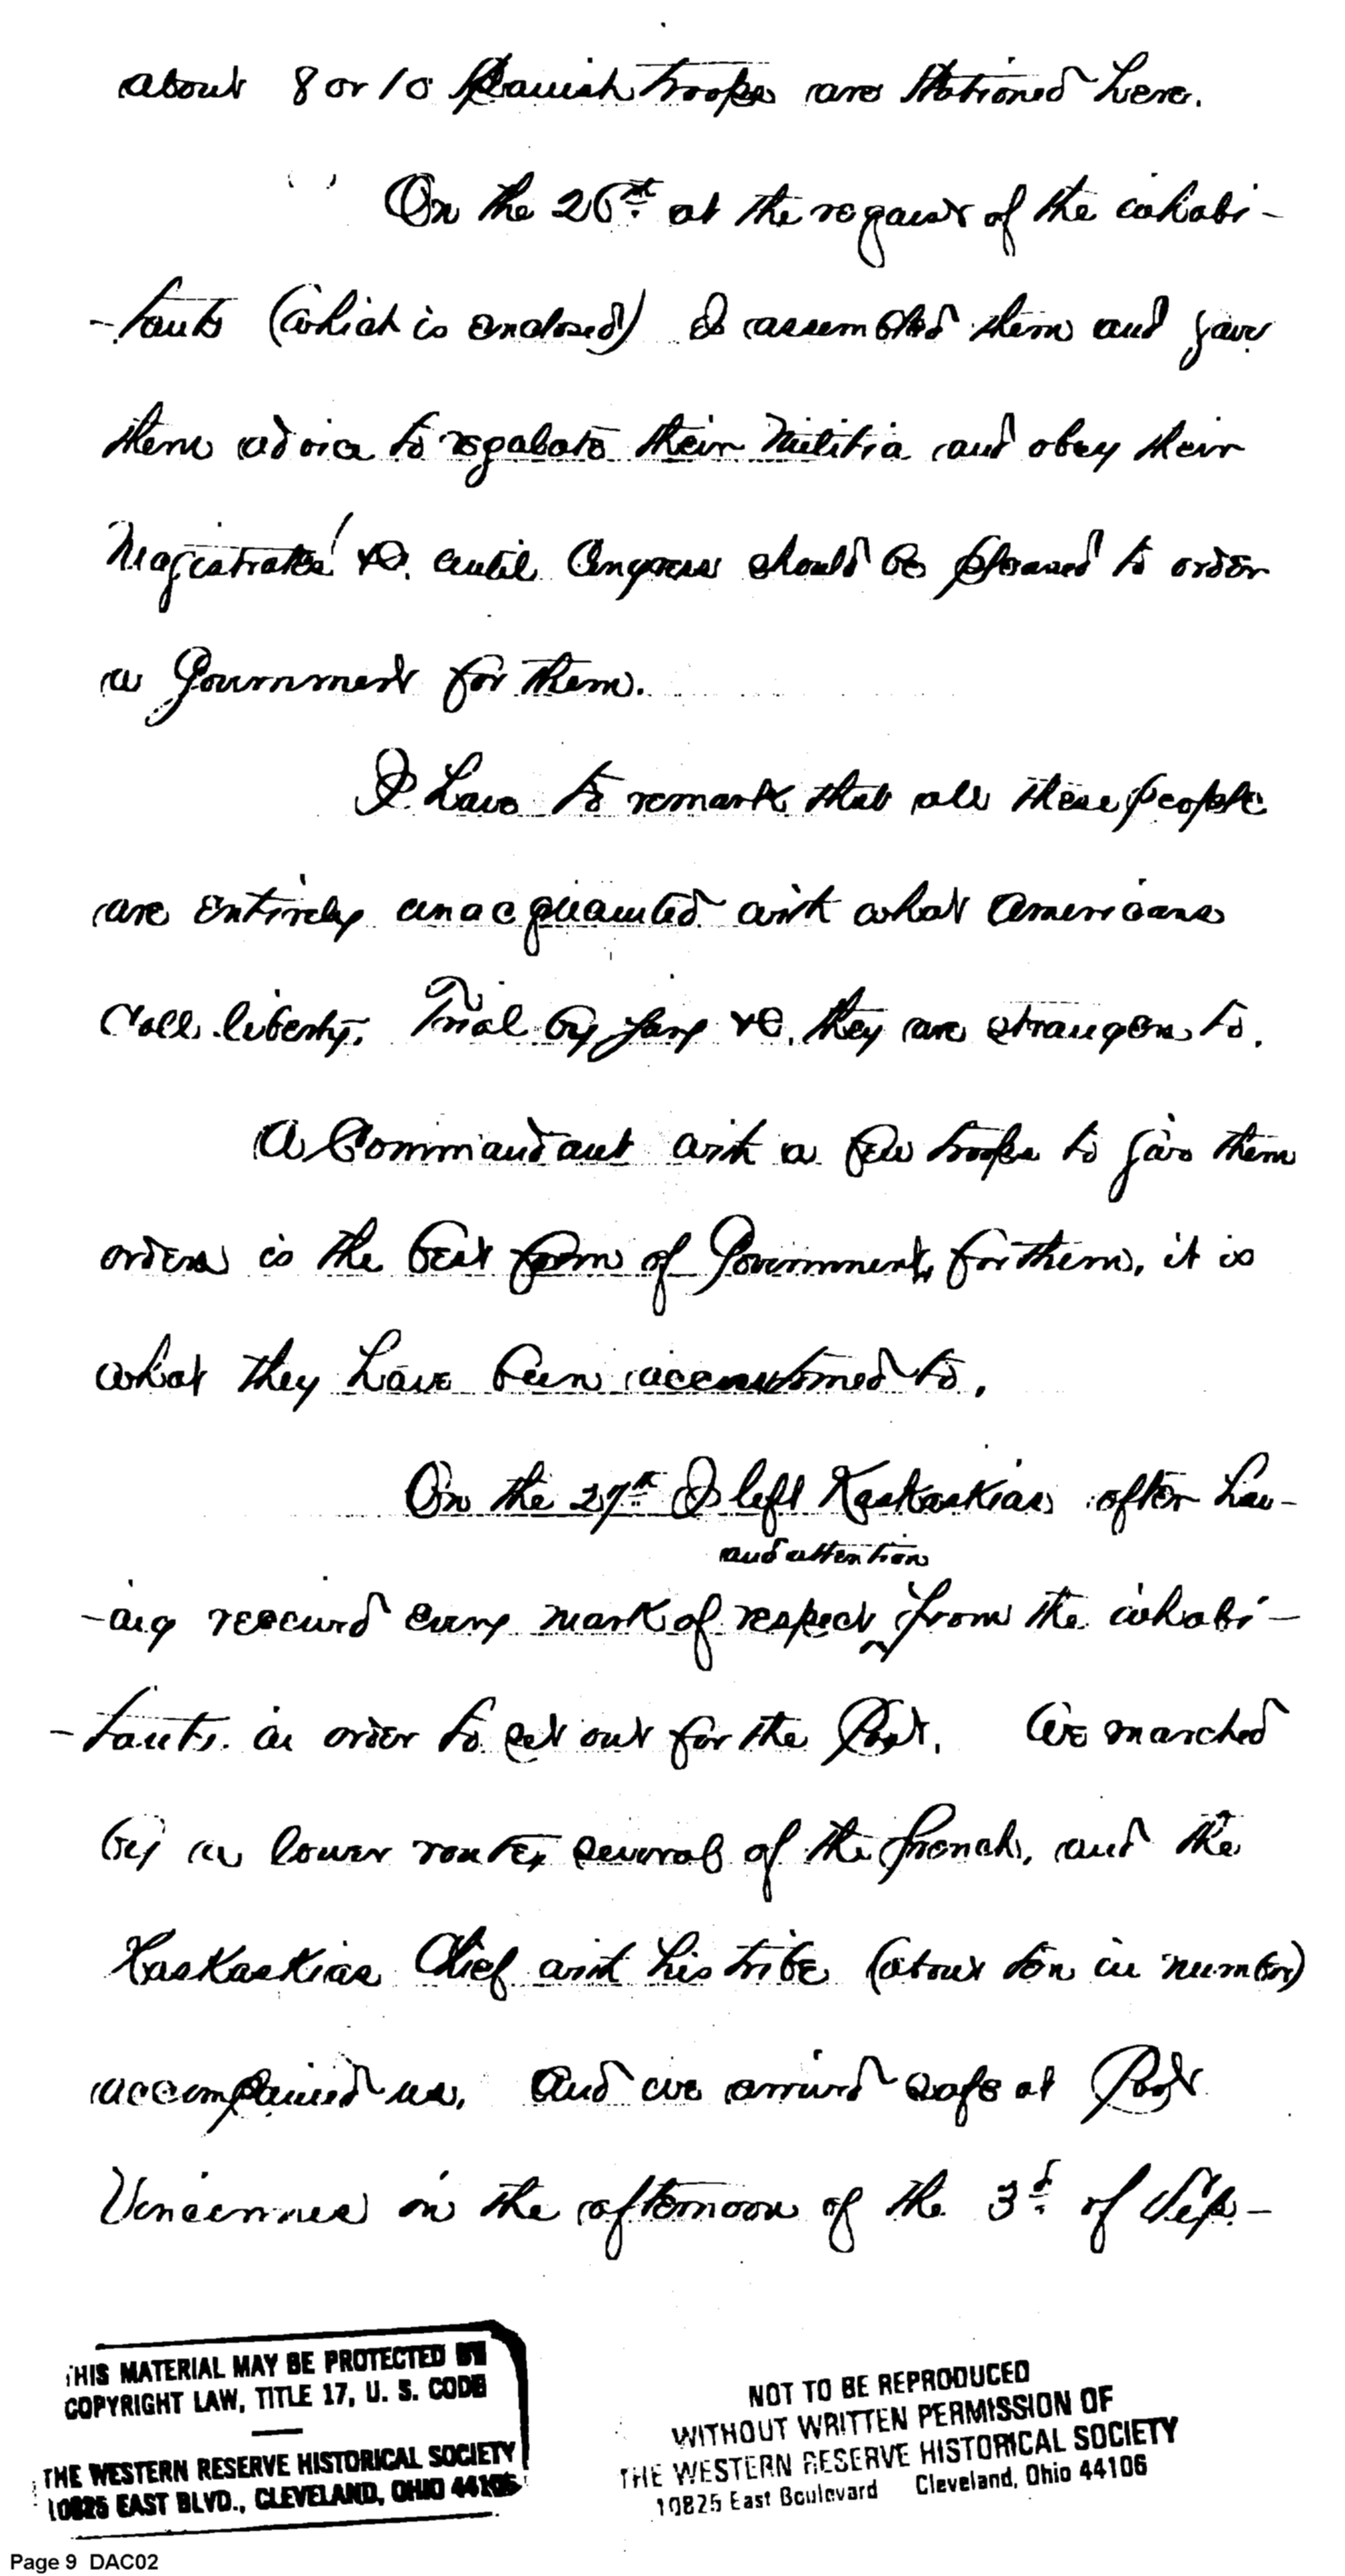 about 8 or 10 Spanish troops are stationed here.
On the 26th. at the request of the inhabi-
-tants (which is enclosed) I assembled them and gave
them advice to regulate their Militia and obey their
Magistrates' &c. until Congress should be pleased to order
a Government for them.
I have to remark that all these people
are entirely unacquainted with what Americans
call liberty. Trial by jury &c. they are strangers to.
A Commandant with a few troops to give them
orders is the best form of Government for them, it is
what they have been accustomed to.
On the 27th. I left Kaskaskias after hav-
and attention
-ing received every mark of respect ^ from the inhabi-
-tants. in order to set out for the Post. We marched
by a lower route, several of the french, and the
Kaskaskias Chief with his tribe (about ten in number)
accompanied us. And we arrived safe at Post
Vincennes in the afternoon of the 3d. of Sep.-
THIS MATERIAL MAY BE PROTECTED BY
COPYRIGHT LAW, TITLE 17, U. S. CODE
THE WESTERN RESERVE HISTORICAL SOCIETY
10825 EAST BLVD., CLEVELAND, OHIO 44106
NOT TO BE REPRODUCED
WITHOUT WRITTEN PERMISSION OF
THE WESTERN RESERVE HISTORICAL SOCIETY
10825 East Boulevard Cleveland, Ohio 44106
Page 9 DAC02